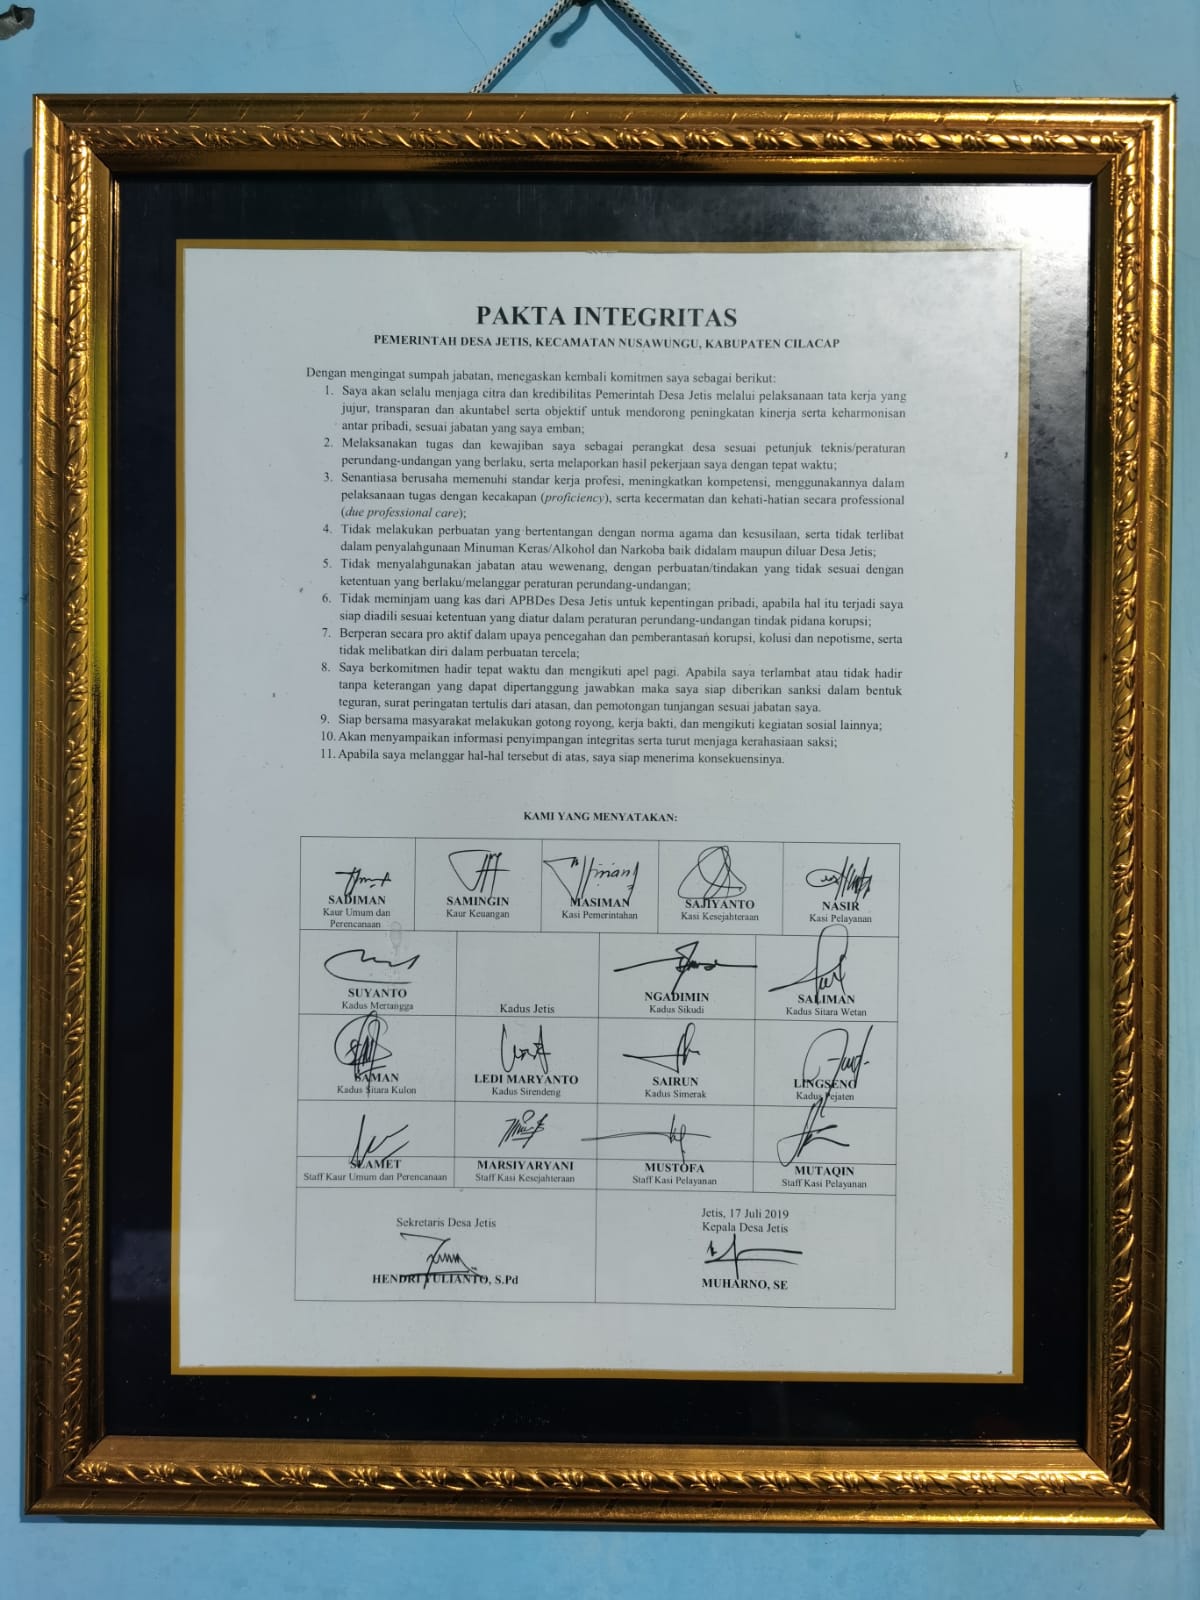 PAKTA INTEGRITAS
PEMERINTAH DESA JETIS, KECAMATAN NUSAWUNGU, KABUPATEN CILACAP
Dengan mengingat sumpah jabatan, menegaskan kembali komitmen saya sebagai berikut:
1. Saya akan selalu menjaga citra dan kredibilitas Pemerintah Desa Jetis melalui pelaksanaan tata kerja yang
jujur, transparan dan akuntabel serta objektif untuk mendorong peningkatan kinerja serta keharmonisan
antar pribadi, sesuai jabatan yang saya emban;
2. Melaksanakan tugas dan kewajiban saya sebagai perangkat desa sesuai petunjuk teknis/peraturan
perundang-undangan yang berlaku, serta melaporkan hasil pekerjaan saya dengan tepat waktu;
3. Senantiasa berusaha memenuhi standar kerja profesi, meningkatkan kompetensi, menggunakannya dalam
pelaksanaan tugas dengan kecakapan (proficiency), serta kecermatan dan kehati-hatian secara professional
(due professional care);
4. Tidak melakukan perbuatan yang bertentangan dengan norma agama dan kesusilaan, serta tidak terlibat
dalam penyalahgunaan Minuman Keras/Alkohol dan Narkoba baik didalam maupun diluar Desa Jetis;
5. Tidak menyalahgunakan jabatan atau wewenang, dengan perbuatan/tindakan yang tidak sesuai dengan
ketentuan yang berlaku/melanggar peraturan perundang-undangan;
6. Tidak meminjam uang kas dari APBDes Desa Jetis untuk kepentingan pribadi, apabila hal itu terjadi saya
siap diadili sesuai ketentuan yang diatur dalam peraturan perundang-undangan tindak pidana korupsi;
7. Berperan secara pro aktif dalam upaya pencegahan dan pemberantasan korupsi, kolusi dan nepotisme, serta
tidak melibatkan diri dalam perbuatan tercela;
8. Saya berkomitmen hadir tepat waktu dan mengikuti apel pagi. Apabila saya terlambat atau tidak hadir
tanpa keterangan yang dapat dipertanggung jawabkan maka saya siap diberikan sanksi dalam bentuk
teguran, surat peringatan tertulis dari atasan, dan pemotongan tunjangan sesuai jabatan saya.
9. Siap bersama masyarakat melakukan gotong royong, kerja bakti, dan mengikuti kegiatan sosial lainnya;
10. Akan menyampaikan informasi penyimpangan integritas serta turut menjaga kerahasiaan saksi;
11. Apabila saya melanggar hal-hal tersebut di atas, saya siap menerima konsekuensinya.
KAMI YANG MENYATAKAN:
SADIMAN
Kaur Umum dan
Perencanaan
SAMINGIN
Kaur Keuangan
MASIMAN
Kasi Pemerintahan
SAJIYANTO
Kasi Kesejahteraan
NASIR
Kasi Pelayanan
SUYANTO
Kadus Mertangga
Kadus Jetis
NGADIMIN
Kadus Sikudi
SALIMAN
Kadus Sitara Wetan
SAMAN
Kadus Sitara Kulon
LEDI MARYANTO
Kadus Sirendeng
SAIRUN
Kadus Simerak
LINGSENO
Kadus Pejaten
SLAMET
Staff Kaur Umum dan Perencanaan
MARSIYARYANI
Staff Kasi Kesejahteraan
MUSTOFA
Staff Kasi Pelayanan
MUTAQIN
Staff Kasi Pelayanan
Sekretaris Desa Jetis
HENDRI YULIANTO, S.Pd
Jetis, 17 Juli 2019
Kepala Desa Jetis
MUHARNO, SE